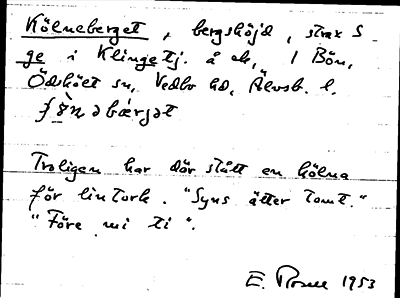 Kölneberget, bergshöjd, strax S
ge i Klingetj. å ek, 1 Bön,
Ödskölt sn, Vedbo hd, Älvsb. l.
Troligen har där stått en kölna
för lintork. "Syns ätter tomt."
"Före mi ti".
E. 1953